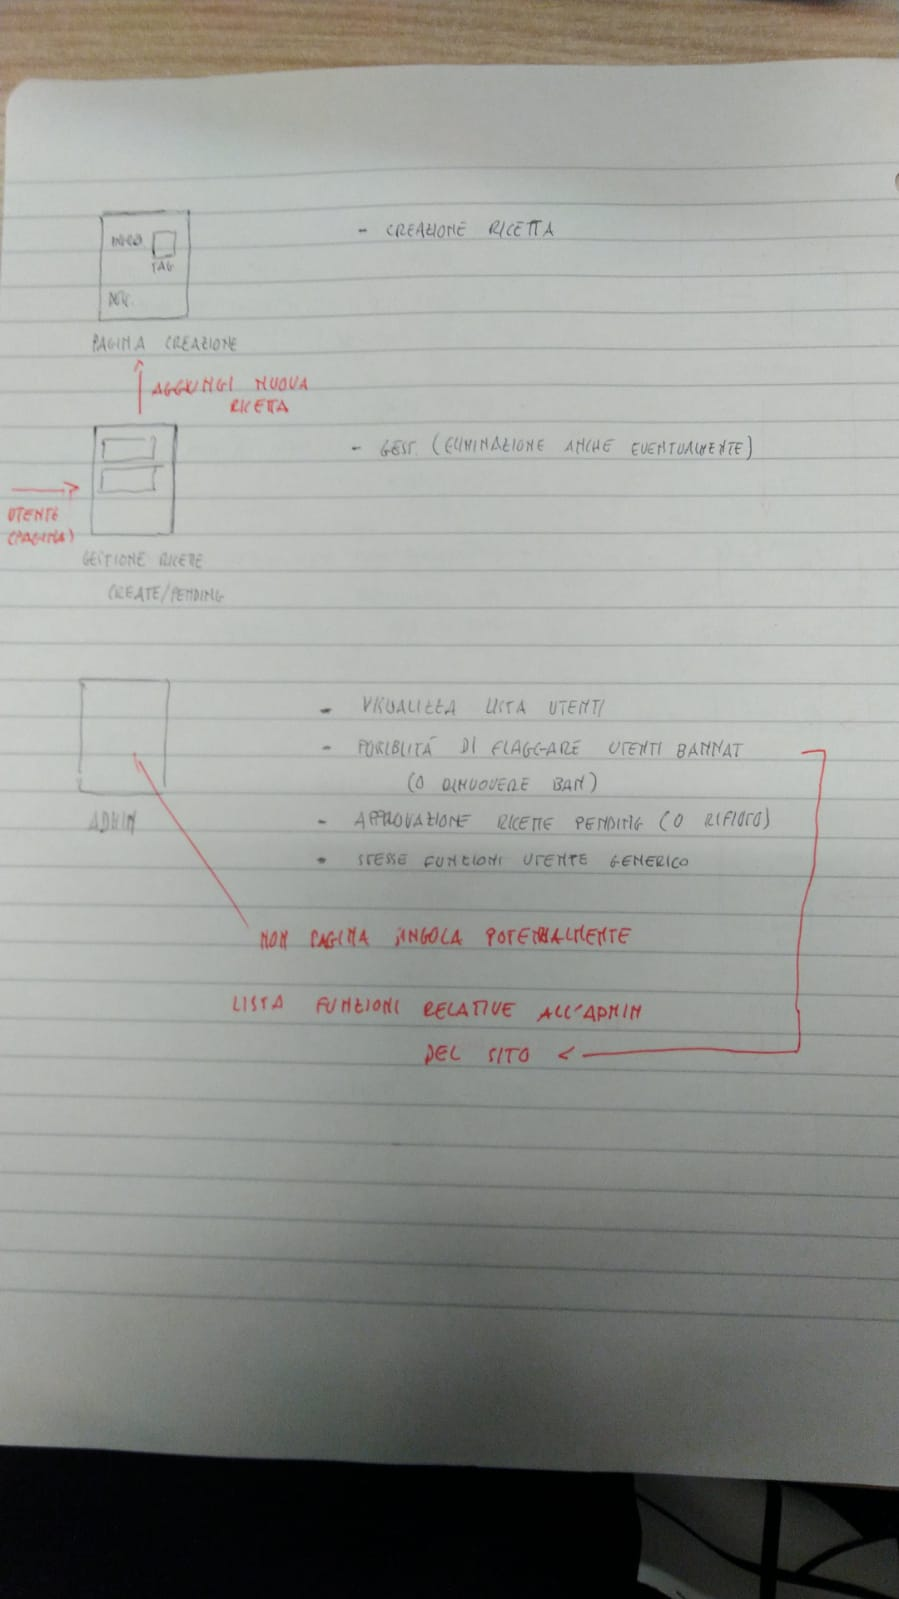 - CREAZIONE RICETTA
TAG
PAGINA CREAZIONE
AGGIUNGI NUOVA
RICETTA
- GEST. (ELIMINAZIONE ANCHE EVENTUALMENTE)
UTENTE
(PAGINA)
GESTIONE RICETTE
CREATE/PENDING
- VISUALIZZA LISTA UTENTI
- POSIBLITÁ DI FLAGGARE UTENTI BANNAT
(O RIMUOVERE BAN)
ADMIN
- APPROVAZIONE RICETTE PENDING (O RIFIUTO)
- STESSE FUNZIONI UTENTE GENERICO
NON PAGINA SINGOLA POTENZIALMENTE
LISTA FUNZIONI RELATIVE ALL'ADMIN
DEL SITO